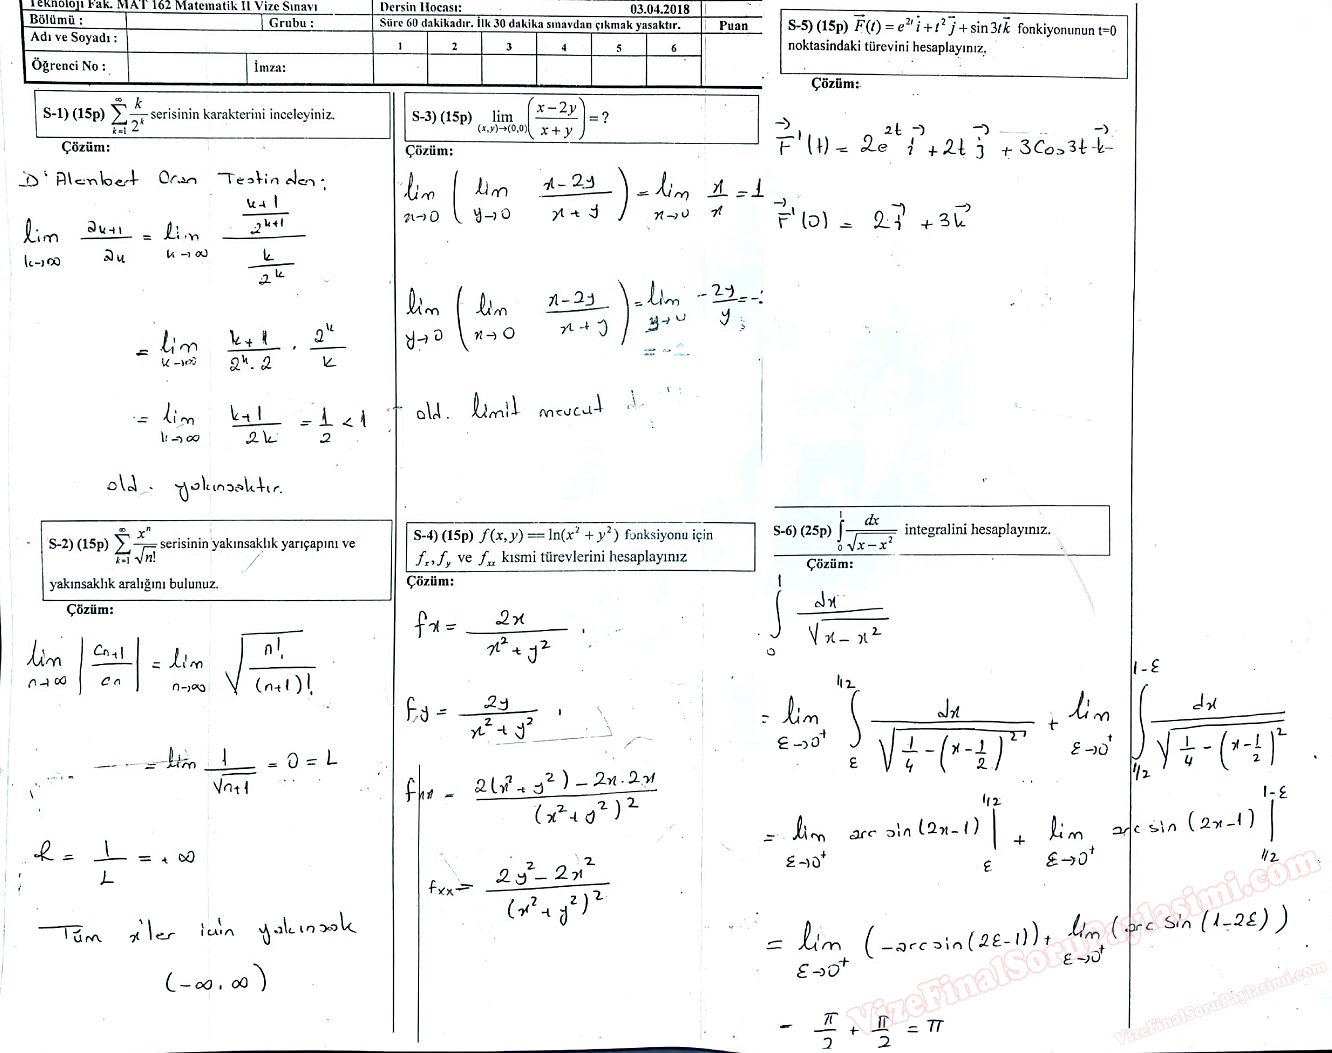 Teknoloji Fak. MAT 162 Matematik II Vize Sınavı
Dersin Hocası: 03.04.2018
Bölümü : Grubu : Süre 60 dakikadır. İlk 30 dakika sınavdan çıkmak yasaktır. Puan
Adı ve Soyadı : 1 2 3 4 5 6
Öğrenci No : İmza:
S-1) (15p) ∑_{k=1}^{∞} k/2^k serisinin karakterini inceleyiniz.
Çözüm:
D'Alenbert Oran Testinden;
lim_{k→∞} a_{k+1}/a_k = lim_{k→∞} ((k+1)/2^{k+1})/(k/2^k)
= lim_{k→∞} (k+1)/(2^k.2) . 2^k/k
= lim_{k→∞} (k+1)/(2k) = 1/2 < 1
old. yakınsaktır.
S-2) (15p) ∑_{k=1}^{∞} x^n/√n! serisinin yakınsaklık yarıçapını ve
yakınsaklık aralığını bulunuz.
Çözüm:
lim_{n→∞} |c_{n+1}/c_n| = lim_{n→∞} √(n!/(n+1)!)
= lim 1/√(n+1) = 0 = L
R = 1/L = +∞
Tüm x'ler için yakınsak
(-∞, ∞)
S-3) (15p) lim_{(x,y)→(0,0)} ((x-2y)/(x+y)) = ?
Çözüm:
lim_{x→0} (lim_{y→0} (x-2y)/(x+y)) = lim_{x→0} x/x = 1
lim_{y→0} (lim_{x→0} (x-2y)/(x+y)) = lim_{y→0} -2y/y = -2
old. limit mevcut
S-4) (15p) f(x,y) = ln(x²+y²) fonksiyonu için
f_x, f_y ve f_xx kısmi türevlerini hesaplayınız
Çözüm:
fx = 2x/(x²+y²) ,
fy = 2y/(x²+y²) ,
fxx = (2(x²+y²) - 2x.2x)/(x²+y²)²
fxx = (2y²-2x²)/(x²+y²)²
S-5) (15p) F⃗(t) = e^{2t} i⃗ + t² j⃗ + sin3t k⃗ fonkiyonunun t=0
noktasindaki türevini hesaplayınız.
Çözüm:
F⃗'(t) = 2e^{2t} i⃗ + 2t j⃗ + 3Cos3t k⃗
F⃗'(0) = 2i⃗ + 3k⃗
S-6) (25p) ∫_0^1 dx/√(x-x²) integralini hesaplayınız.
Çözüm:
∫_0^1 dx/√(x-x²)
= lim_{ε→0⁺} ∫_ε^{1/2} dx/√(1/4-(x-1/2)²) + lim_{ε→0⁺} ∫_{1/2}^{1-ε} dx/√(1/4-(x-1/2)²)
= lim_{ε→0⁺} arcsin(2x-1) |_ε^{1/2} + lim_{ε→0⁺} arcsin(2x-1) |_{1/2}^{1-ε}
= lim_{ε→0⁺} (-arcsin(2ε-1)) + lim_{ε→0⁺} (arcsin(1-2ε))
= π/2 + π/2 = π
VizeFinalSoruPaylasimi.com
VizeFinalSoruPaylasimi.com